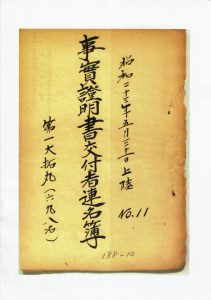 昭和二十三年五月三十一日上陸
No.11
事實證明書交付者連名簿
第一大拓丸(六九八名)
188-10